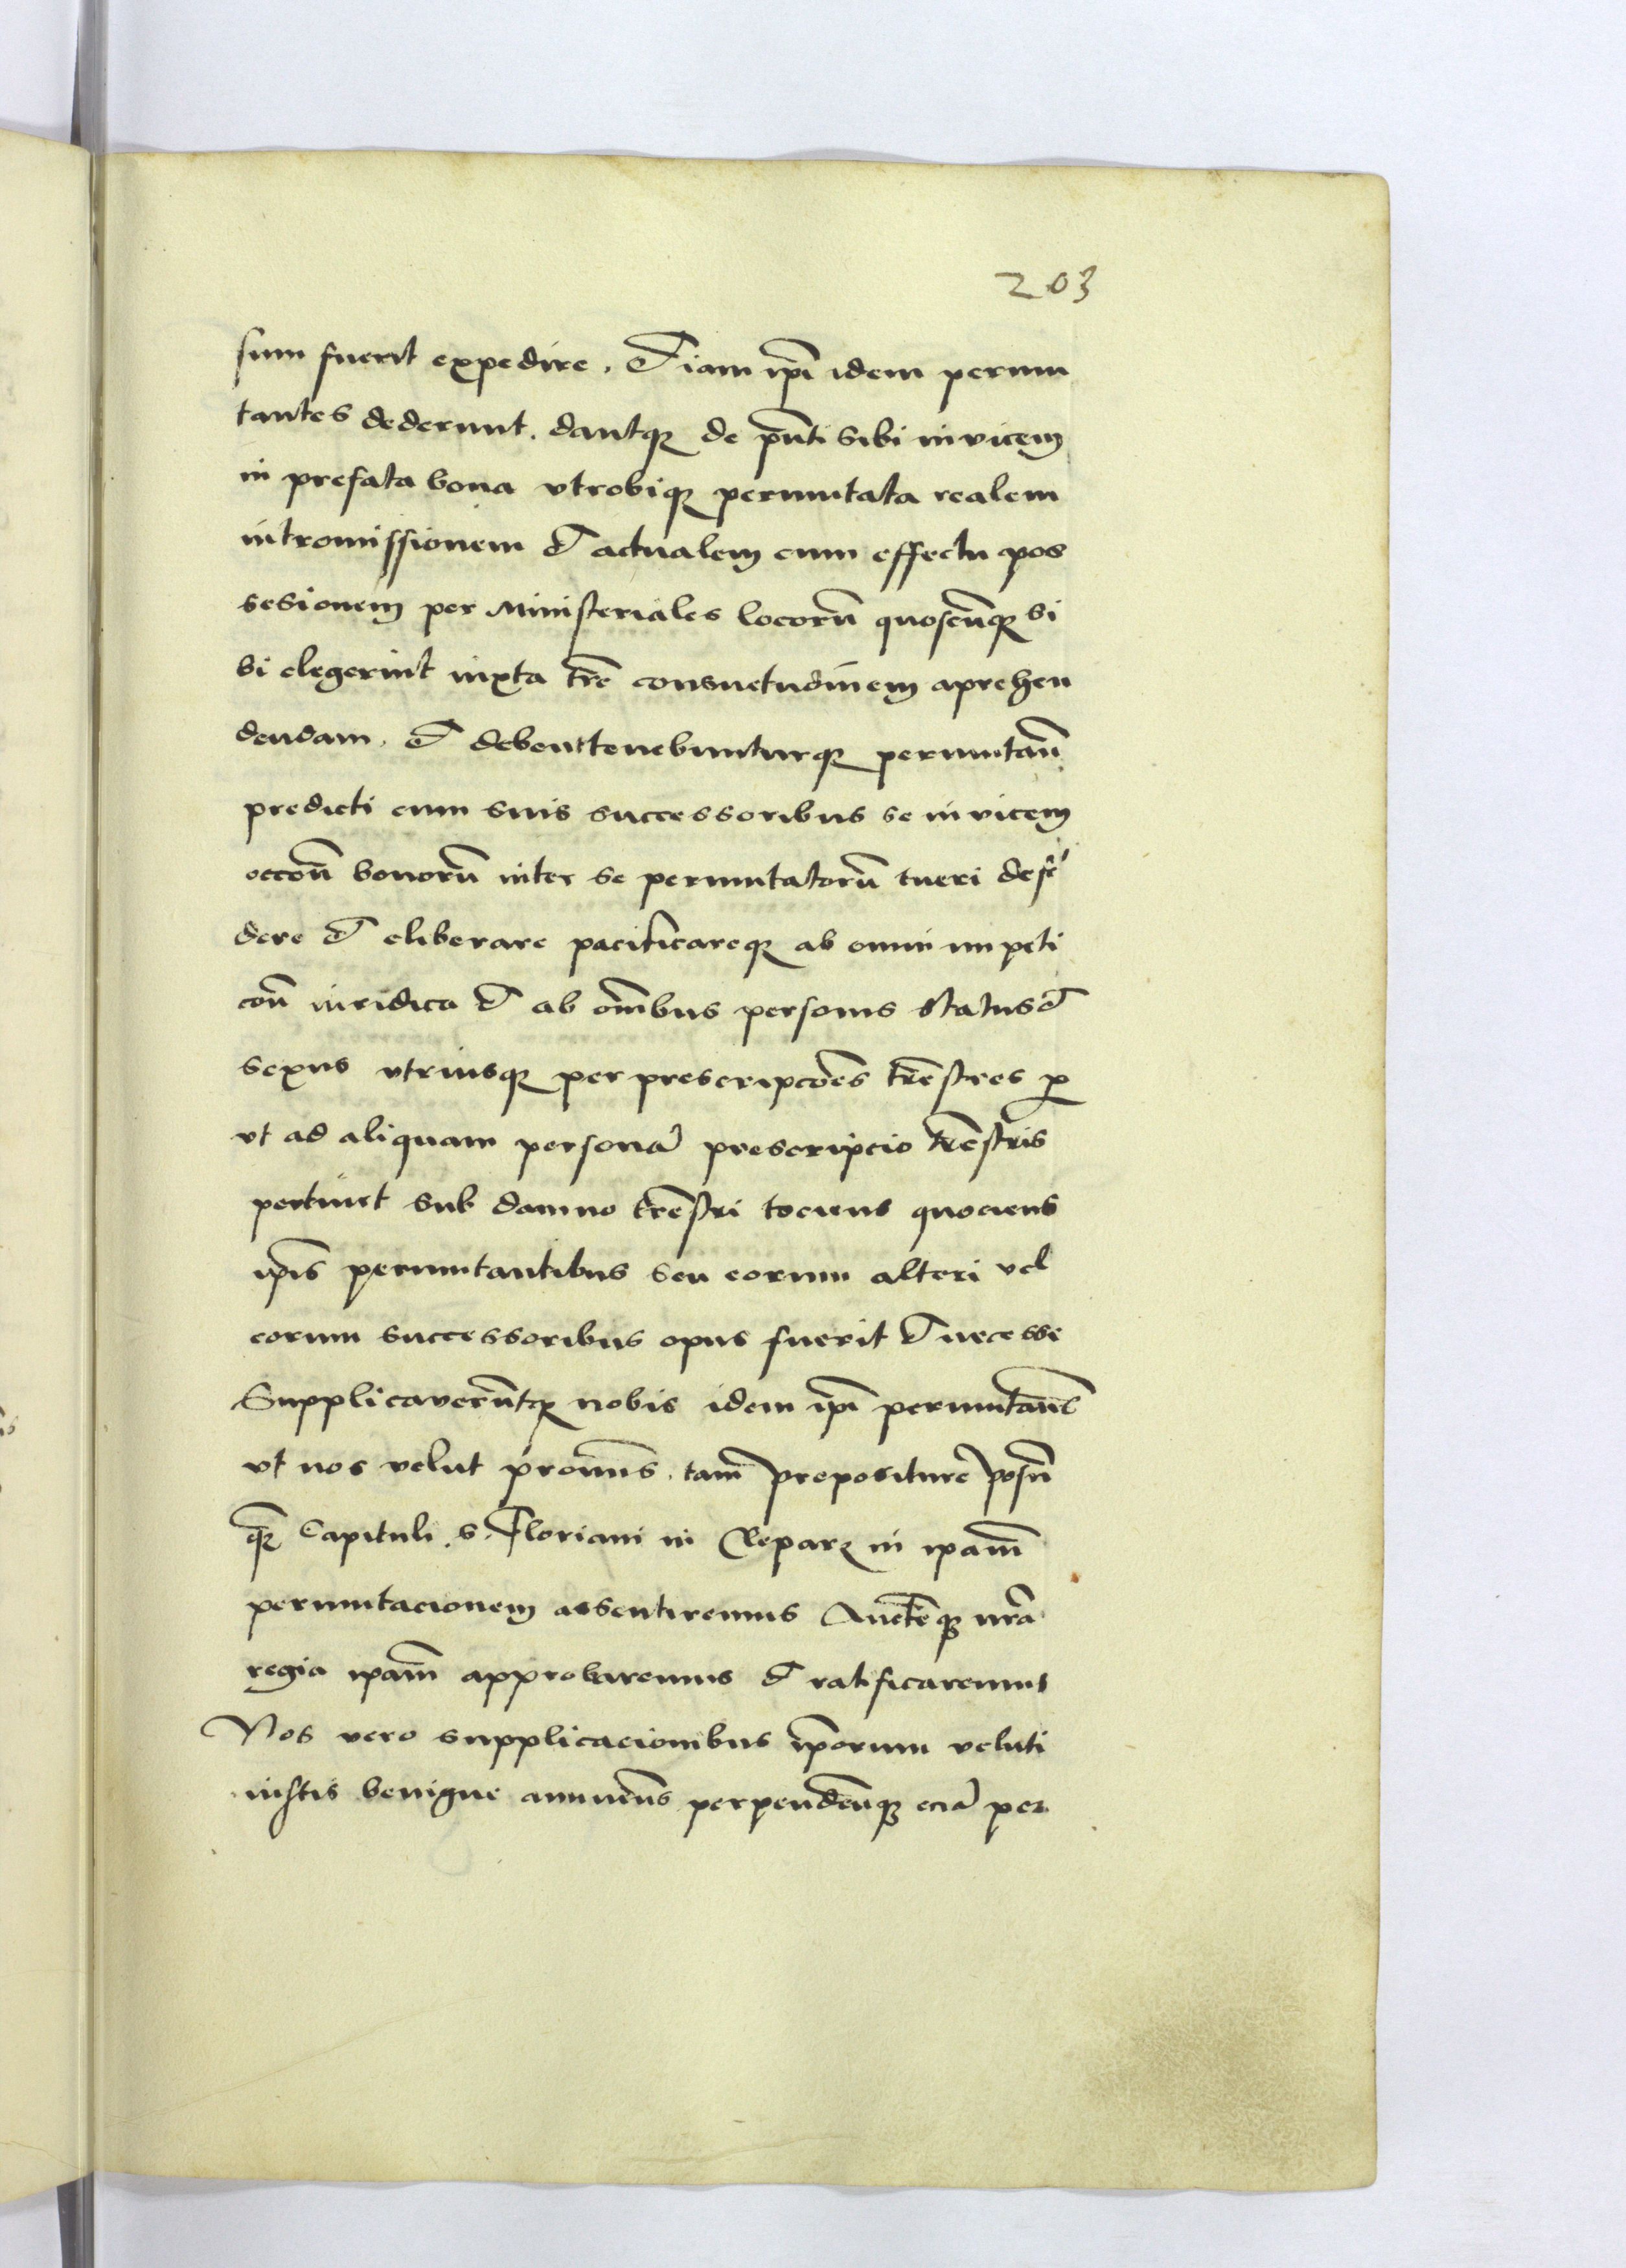 203
sum fuerit expedire. Etiam ip̄i idem permu
tantes dederunt. dantqꝫ de pn̄ti sibi invicem
in prefata bona vtrobiqꝫ permutata realem
intromissionem et actualem cum effectu pos
sesionem per Ministeriales locorū quoscūqꝫ si
bi elegerint iuxta tr̄e consuetudinem aprehen
dendam. et debent tenebunturqꝫ permutan̄
predicti cum suis successoribus se invicem
occōn bonorū inter se permutatorū tueri defē
dere et eliberare pacificareqꝫ ab omni impeti
cōn iuridica et ab om̄ibus personis status et
sexus vtriusqꝫ per prescripcōes trēstres ꝓ
vt ad aliquam personā prescripcio trēstris
pertinet sub damno trēstri tociens quociens
ip̄is permutantibus seu eorum alteri vel
eorum successoribus opus fuerit et necesse
Supplicaverūtqꝫ nobis idem ip̄i permutan̄t
vt nos velut pronus. tam prepositure
qꝫ Capituli. s. Floriani in Clepar in ipam̄
permutacionem assentiremus Auctēqꝫ nr̄a
regia ipam̄ approbaremus et ratificaremus
Nos vero supplicacionibus ip̄orum veluti
iustis benigne annuen̄s perpenden̄qꝫ eciā per